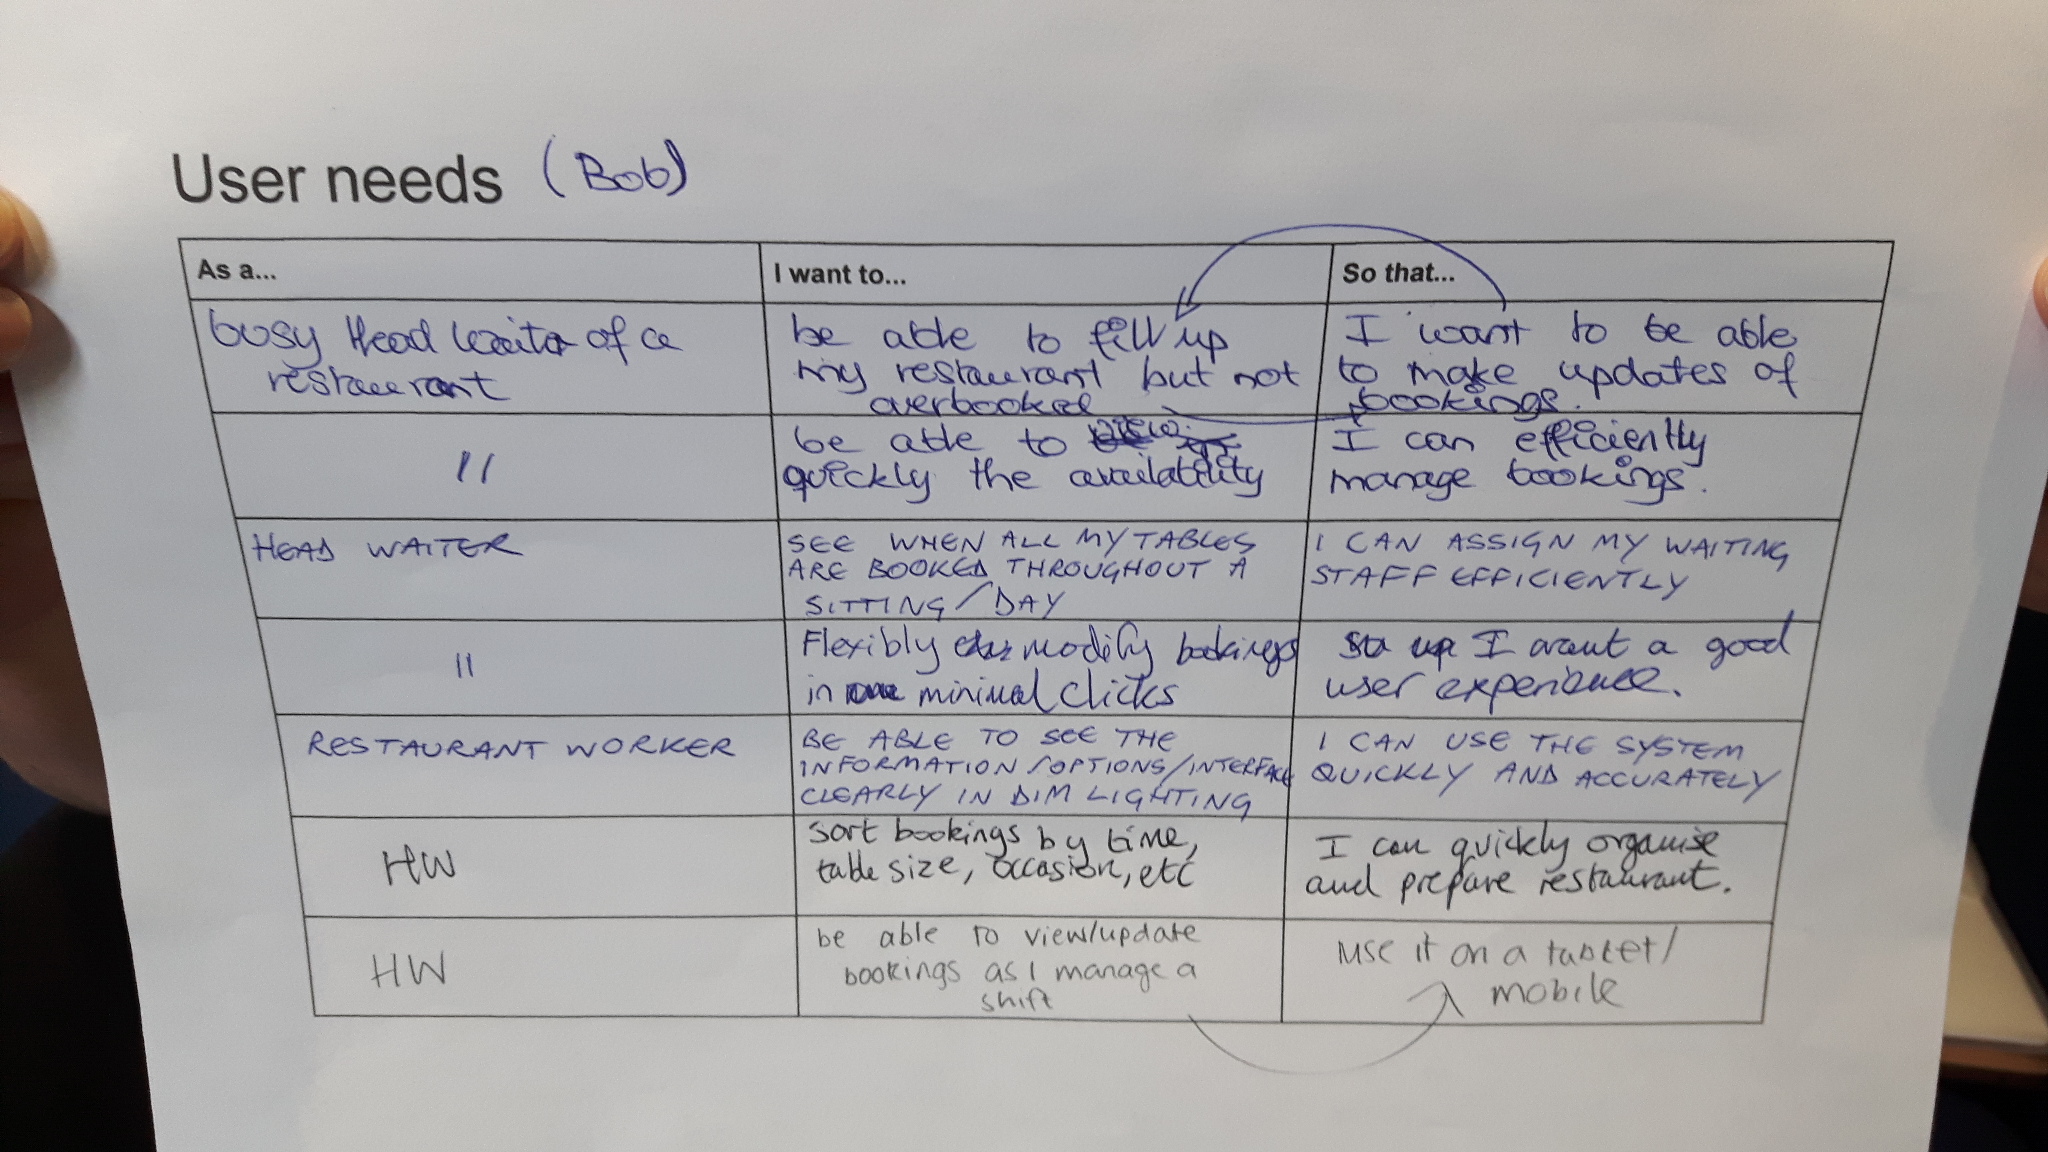 User needs (Bob)
As a...
I want to...
So that...
busy Head waiter of a
restaurant
be able to fill up
my restaurant but not
overbooked
I want to be able
to make updates of
bookings.
"
be able to view
quickly the availability
I can efficiently
manage bookings.
HEAD WAITER
SEE WHEN ALL MY TABLES
ARE BOOKED THROUGHOUT A
SITTING/DAY
I CAN ASSIGN MY WAITING
STAFF EFFICIENTLY
"
Flexibly modify bookings
in minimal clicks
I want a good
user experience.
RESTAURANT WORKER
BE ABLE TO SEE THE
INFORMATION/OPTIONS/INTERFACE
CLEARLY IN DIM LIGHTING
I CAN USE THE SYSTEM
QUICKLY AND ACCURATELY
HW
sort bookings by time,
table size, occasion, etc
I can quickly organise
and prepare restaurant.
HW
be able to view/update
bookings as I manage a
shift
use it on a tablet/
mobile